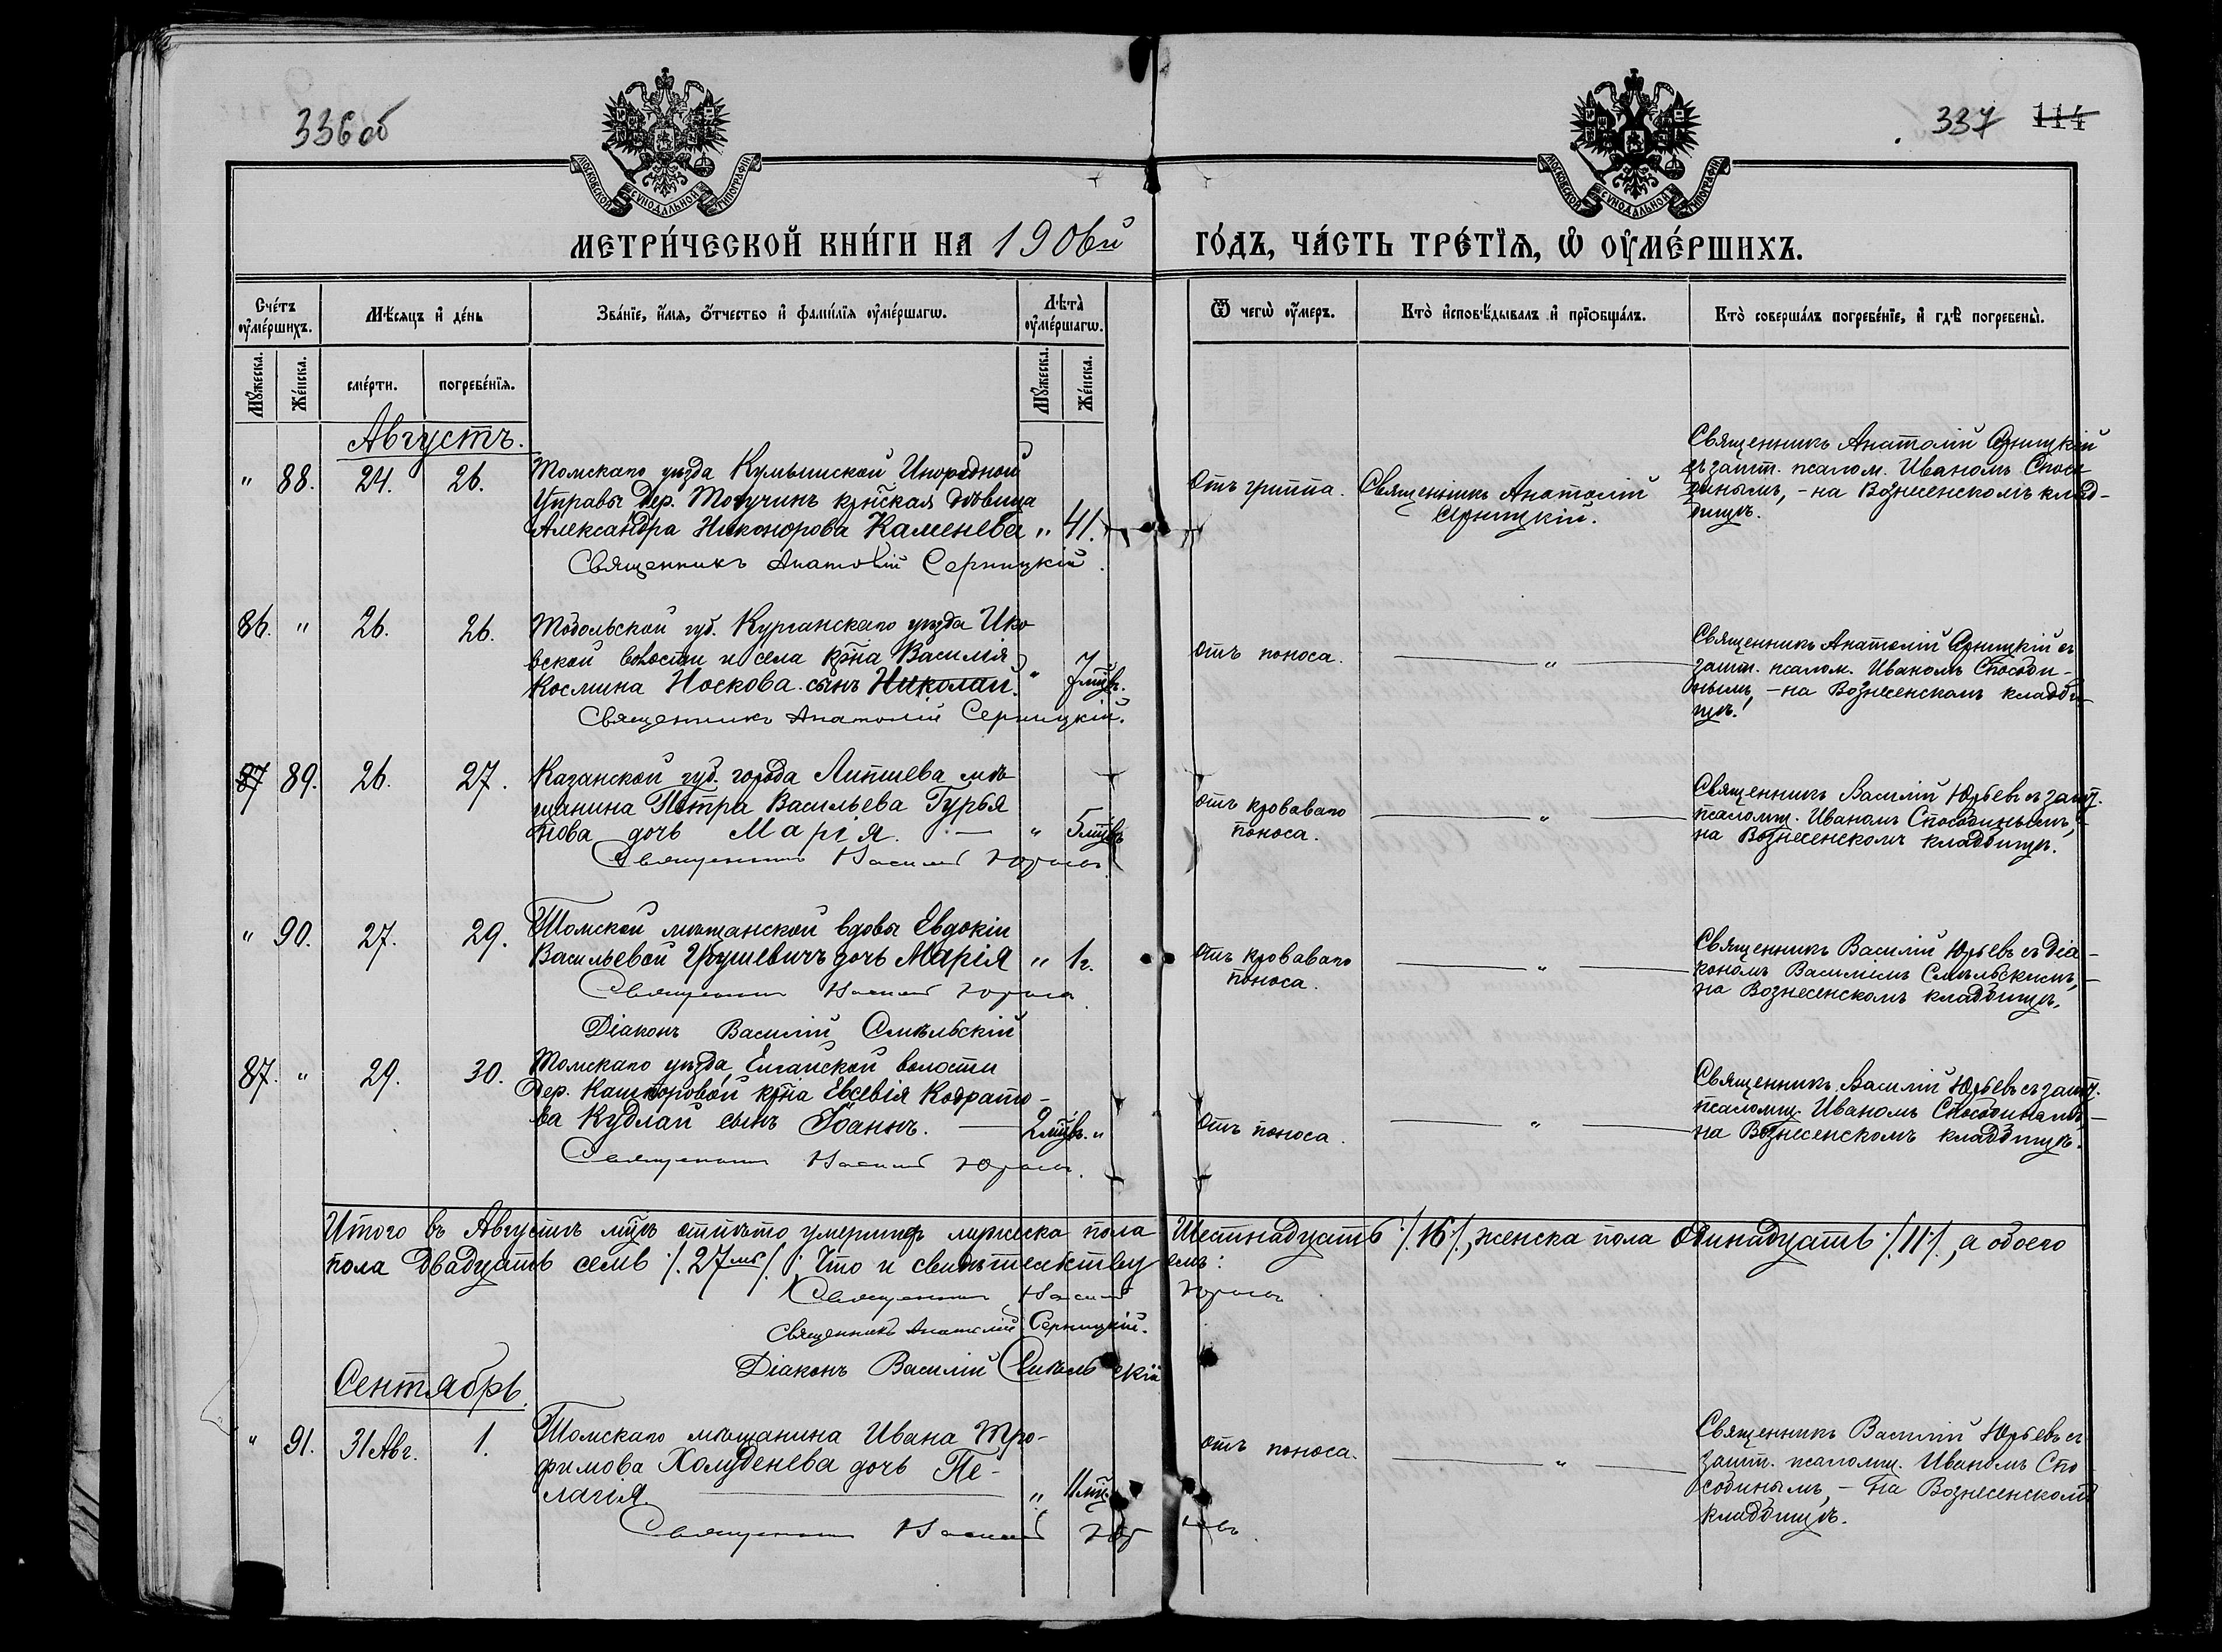 336 об
337 114
МОСКОВСКОЙ СѴНОДАЛЬНОЙ ТИПОГРАФІИ
МОСКОВСКОЙ СѴНОДАЛЬНОЙ ТИПОГРАФІИ
МЕТРИ́ЧЕСКОЙ КНИ́ГИ НА 1906й ГО́ДЪ, ЧА́СТЬ ТРЕ́ТЇѦ, Ѡ҆ ОУ҆МЕ́РШИХЪ.
Сче́тъ оу҆ме́ршихъ.
Мѣ́сяцъ и҆ де́нь
Зва́нїе, и҆́мѧ, ѻ҆́тчество и҆ фами́лїѧ оу҆ме́ршагѡ.
Лѣ́та̀ оу҆ме́ршагѡ.
Ѿ чегѡ̀ оу҆́меръ.
Кто̀ и҆сповѣ́дывалъ и҆ прїѡбща́лъ.
Кто̀ соверша́лъ погребе́нїе, и҆ гдѣ̀ погребены̀.
Мꙋ́жеска. Же́нска. сме́рти. погребе́нїѧ. Мꙋ́жеска. Же́нска.
Августъ.
" 88. 24. 26. Томскаго уѣзда Кумышской Инородной
Управы дер. Тогучинъ кр-нская дѣвица
Александра Никонорова Каменева " 41.
Священникъ Анатолій Серницкій.
отъ гриппа.
Священникъ Анатолій
Серницкій.
Священникъ Анатолій Серницкій
съ зашт. псалом. Иваномъ Спосо
биным, - на Вознесенскомъ клад-
бищѣ.
86. " 26. 26. Тобольской губ. Курганскаго уѣзда Ико
вской волости и села кр-на Василія
Космина Носкова сынъ Николай. " 7 мцв.
Священникъ Анатолій Серницкій.
отъ поноса.
"
Священникъ Анатолій Серницкій съ
зашт. псалом. Иваномъ Способи-
нымъ, - на Вознесенскомъ кладби
щѣ.
87 89. 26. 27. Казанской губ. города Лаишева мѣ
щанина Петра Васильева Гурья
нова дочь Марія. — " 5 мцв
Священникъ Василій Юрьевъ.
отъ кроваваго
поноса.
"
Священникъ Василій Юрьевъ съ зашт.
псаломщ. Иваномъ Способинымъ,
на Вознесенскомъ кладбищѣ.
" 90. 27. 29. Томской мѣщанской вдовы Евдокіи
Васильевой Грушевичъ дочь Марія " 1 г.
Священникъ Василій Юрьевъ.
Діаконъ Василій Смѣльскій
отъ кроваваго
поноса.
"
Священникъ Василій Юрьевъ съ діа-
кономъ Василіемъ Смѣльскимъ, -
на Вознесенскомъ кладбищѣ.
87. " 29. 30. Томскаго уѣзда, Елгайской волости
дер. Кашторовой кр-на Евсевія Кодрато-
ва Кудлай сынъ Іоаннъ. — 2 мцв. "
Священникъ Василій Юрьевъ.
отъ поноса.
"
Священникъ Василій Юрьевъ съ зашт.
псаломщ. Иваномъ Способинымъ, -
на Вознесенскомъ кладбищѣ.
Итого въ Августѣ мцѣ отпѣто умершихъ мужеска пола Шестнадцать /.16./, женска пола Одинадцать /.11./, а обоего
пола двадцать семь /.27мь./. Что и свидѣтельствуемъ:
Священникъ Василій Юрьевъ
Священникъ Анатолій Серницкій.
Діаконъ Василій Смѣльскій
Сентябрь.
" 91. 31 Авг. 1. Томскаго мѣщанина Ивана Тро-
фимова Холуденева дочь Пе-
лагія. " 11 мц.
Священникъ Василій Юрьевъ.
отъ поноса.
"
Священникъ Василій Юрьевъ съ
зашт. псаломщ. Иваномъ Спо
собинымъ, - на Вознесенскомъ
кладбищѣ.